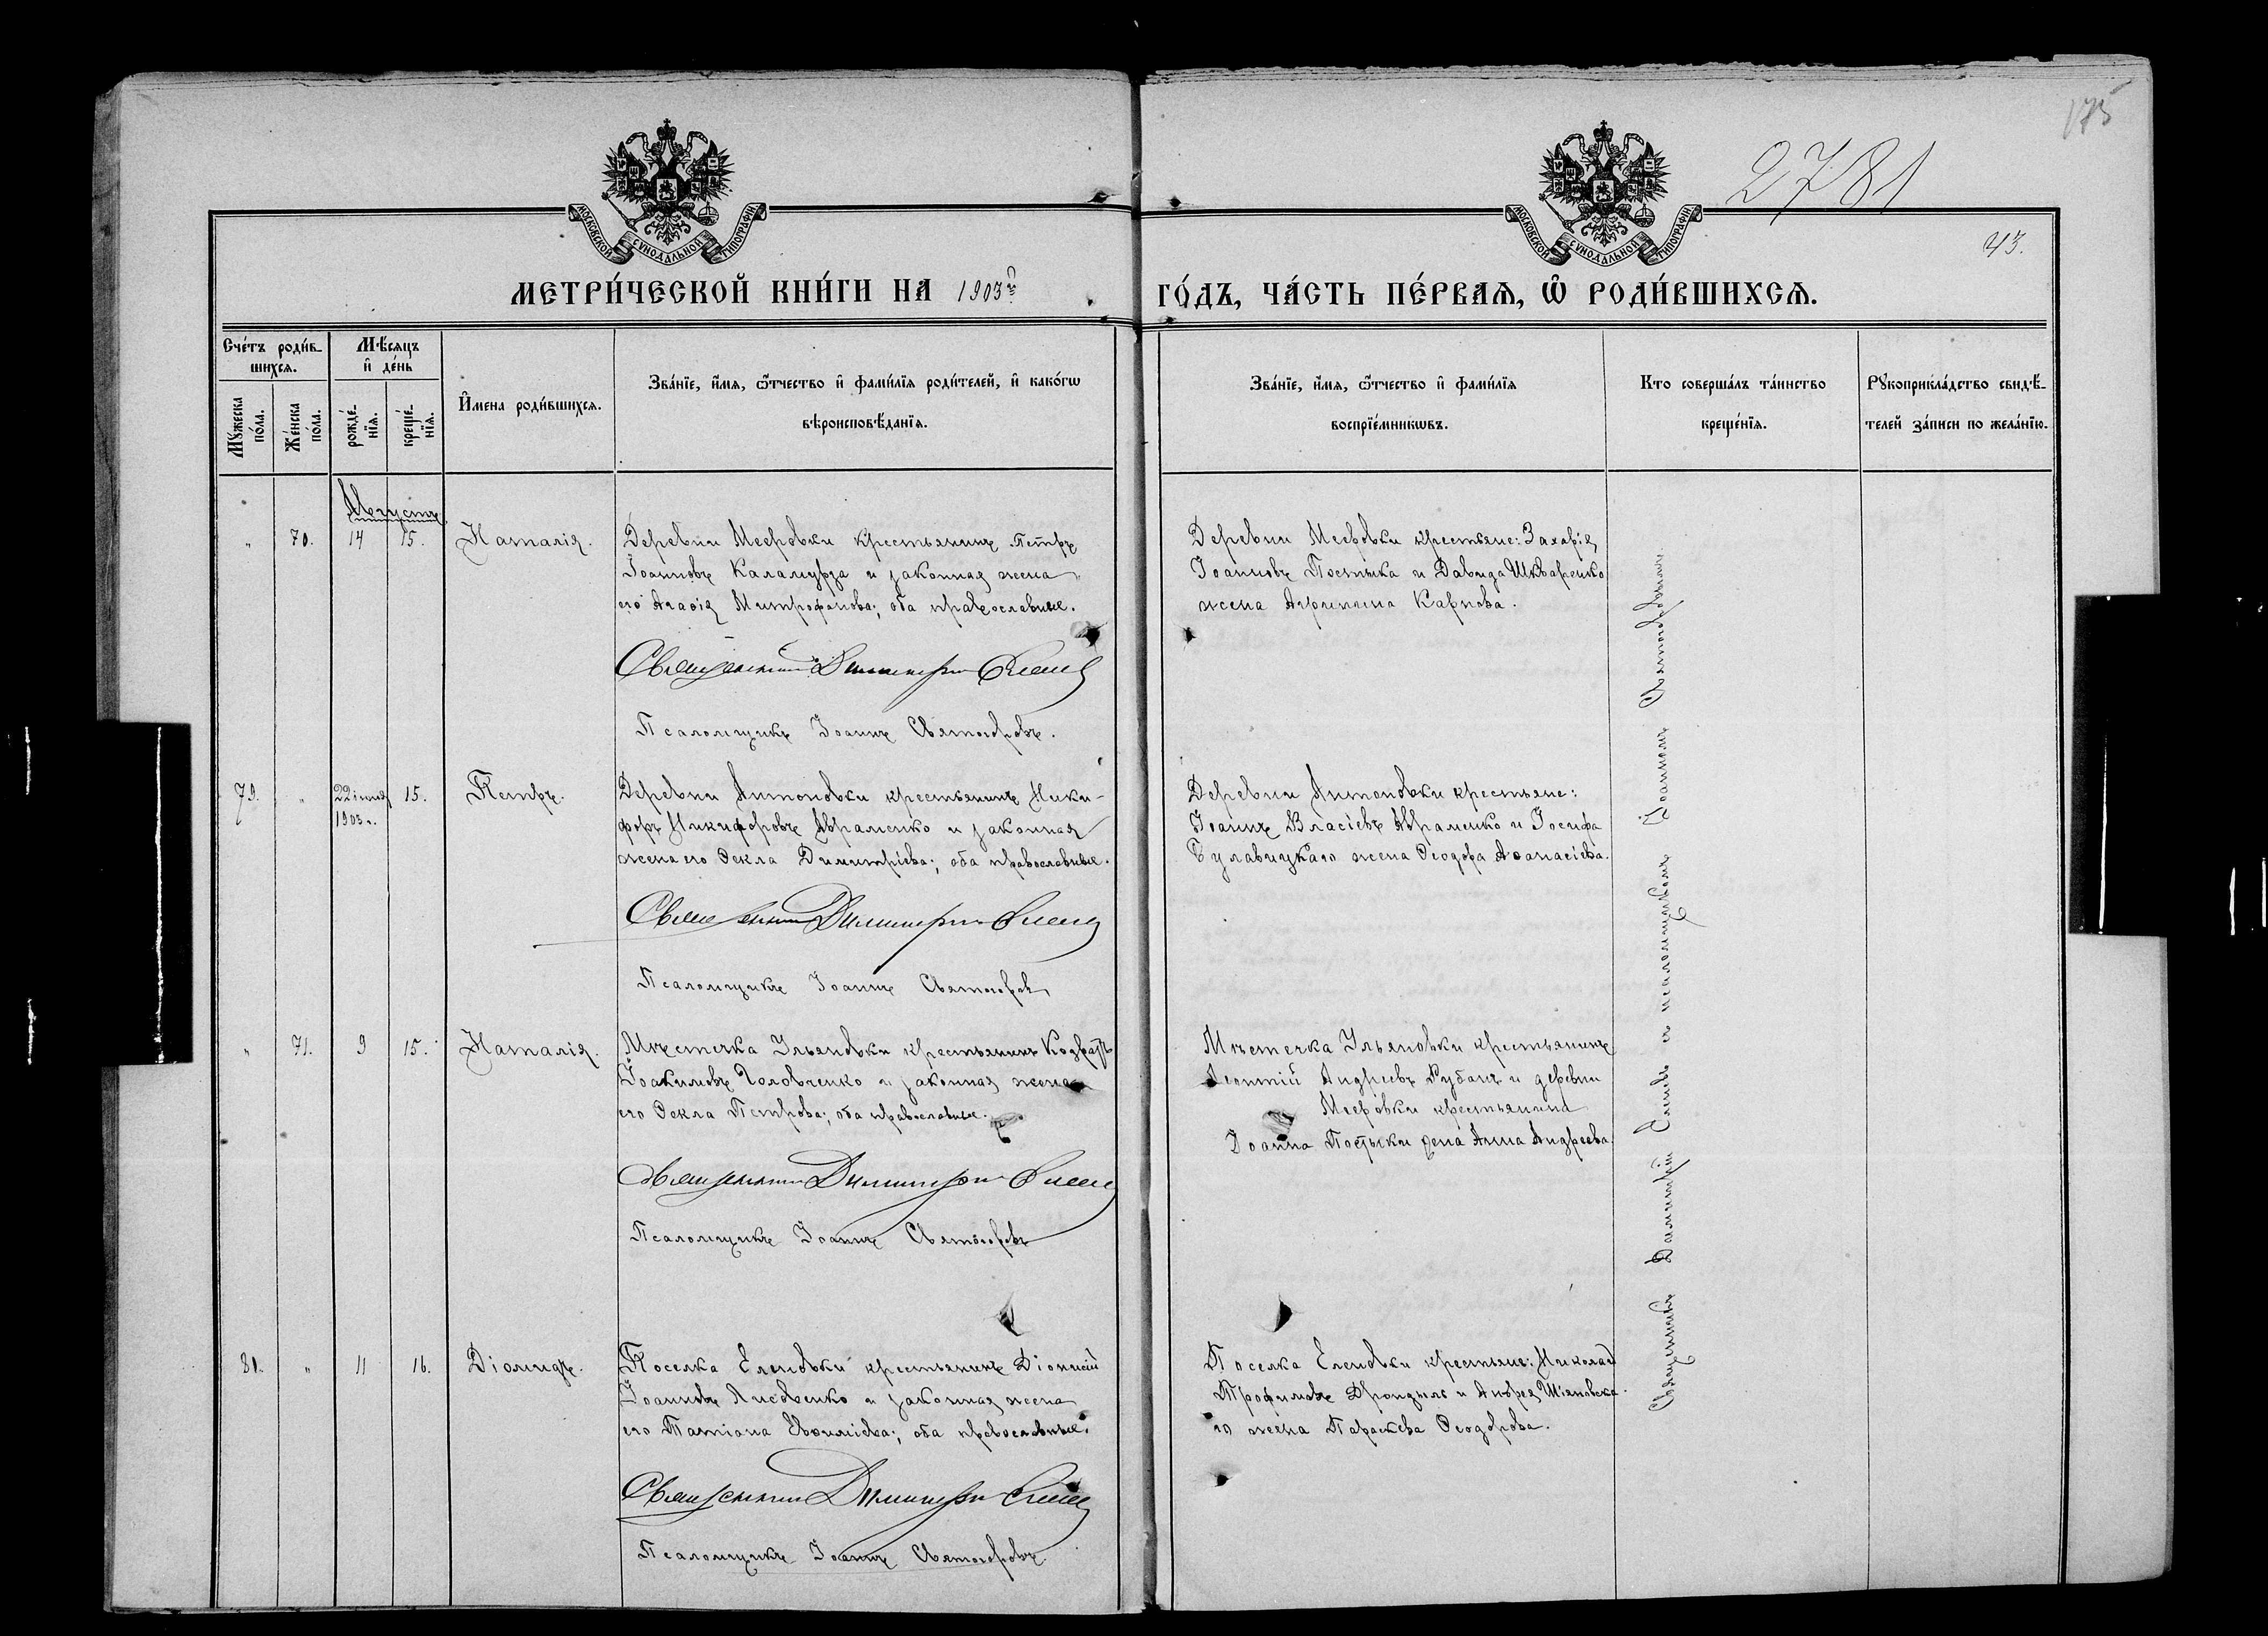 175
2781
43.
МОСКОВСКОЙ СѴНОДАЛЬНОЙ ТИПОГРАФІИ
МОСКОВСКОЙ СѴНОДАЛЬНОЙ ТИПОГРАФІИ
МЕТРИ́ЧЕСКОЙ КНИ́ГИ НА 1903й
ГО́ДЪ, ЧА́СТЬ ПЕ́РВАѦ, Ѡ҆ РОДИ́ВШИХСѦ.
Сче́тъ роди́в-
шихсѧ.
Мꙋ́жеска
по́ла.
Же́нска
по́ла.
Мѣ́сѧцъ
и҆ де́нь
рожде́-
нїѧ.
креще́-
нїѧ.
И҆мена роди́вшихсѧ.
Зва́нїе, и҆́мѧ, ѻ҆́тчество и҆ фами́лїѧ роди́телей, и҆ како́гѡ
вѣроисповѣ́данїѧ.
Зва́нїе, и҆́мѧ, ѻ҆́тчество и҆ фами́лїѧ
воспрїе́мникѡвъ.
Кто̀ соверша́лъ та́инство
креще́нїѧ.
Рꙋкоприкла́дство свидѣ́-
телей за́писи по жела́нїю.
Августъ
" 70. 14 15. Наталія.
Деревни Мееровки крестьянинъ Петръ
Іоанновъ Каламурза и законная жена
его Агаѳія Митрофанова; оба православные.
Священникъ Димитрій
Псаломщикъ Іоаннъ Святогоровъ.
Деревни Мееровки крестьяне: Захарія
Іоанновъ Постыка и Давида Шкваренко
жена Агрипина Карпова.
79. " 22 іюня 15. Петръ.
1903 г.
Деревни Антоновки крестьянинъ Ники-
форъ Никифоровъ Авраменко и законная
жена его Ѳекла Димитріева; оба православные.
Священникъ Димитрій
Псаломщикъ Іоаннъ Святогоровъ
Деревни Антоновки крестьяне:
Іоаннъ Власіевъ Авраменко и Іосифа
Булавицкаго жена Ѳеодора Аѳанасіева.
" 71. 9 15. Наталія.
Мѣстечка Ульяновки крестьянинъ Кодратъ
Іоакимовъ Головченко и законная жена
его Ѳекла Петрова; оба православные.
Священникъ Димитрій
Псаломщикъ Іоаннъ Святогоровъ
Мѣстечка Ульяновки крестьянинъ
Леонтій Андреевъ Рубанъ и деревни
Мееровки крестьянина
Іоанна Постыки жена Анна Андреева.
81. " 11 16. Діомидъ.
Поселка Еленовки крестьянинъ Діонисій
Іоанновъ Лисовенко и законная жена
его Татіана Евѳиміева; оба православные.
Священникъ Димитрій
Псаломщикъ Іоаннъ Святогоровъ
Поселка Еленовки крестьяне: Николай
Трофимовъ и Андрея Шіяновска-
го жена Параскева Ѳеодорова.
Священникъ Димитрій съ псаломщикомъ Іоанномъ Святогоровымъ